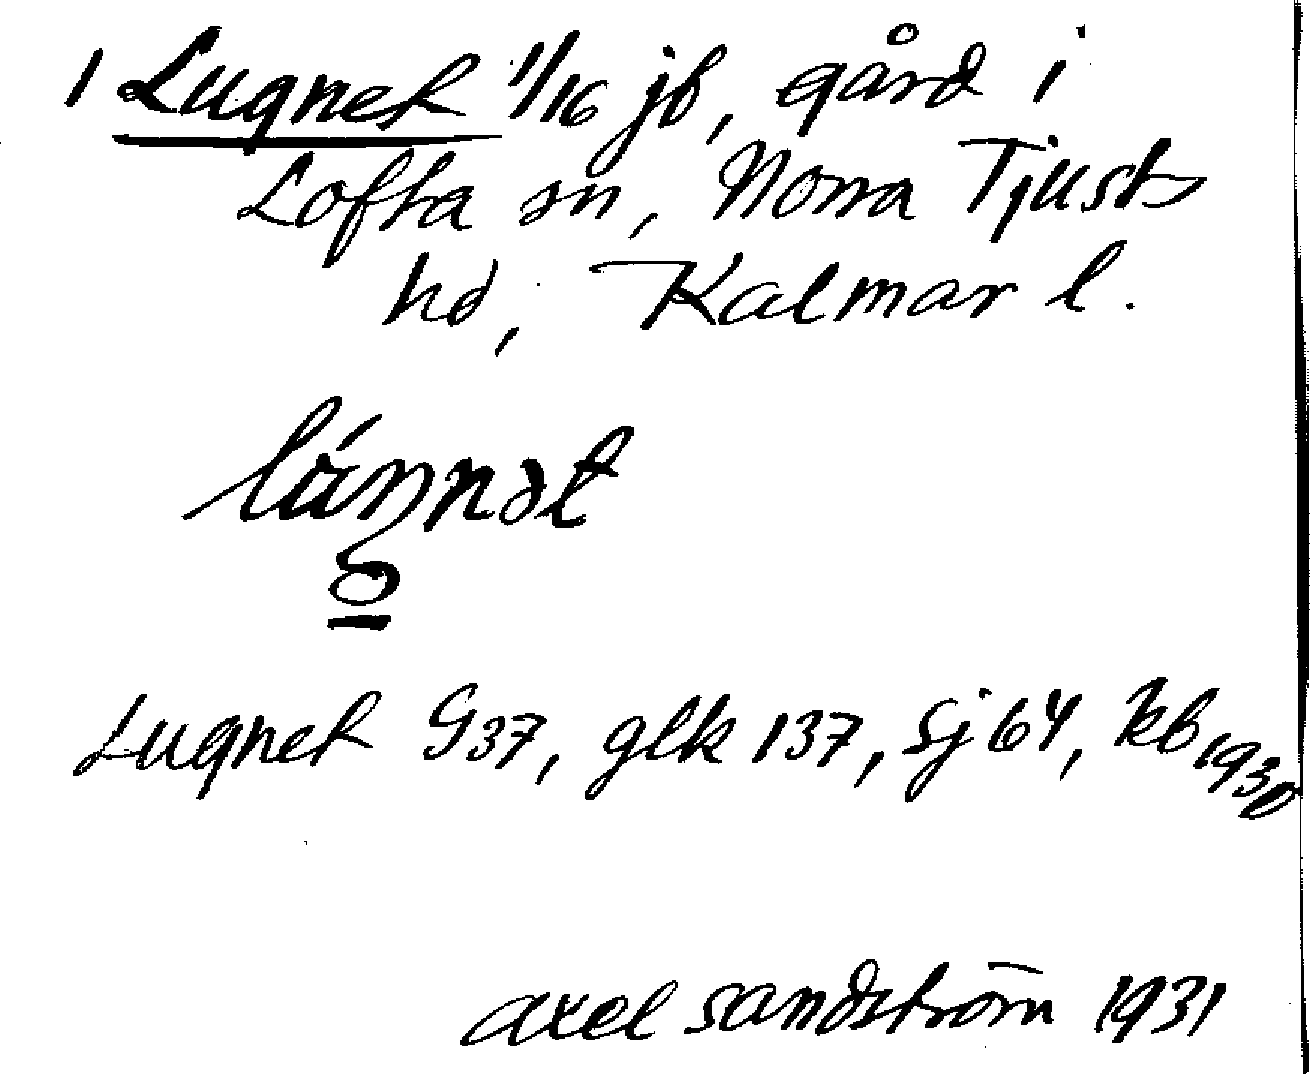 1 Lugnet 1/16 jb, gård i
Lofta sn, Norra Tjusts
hd, Kalmar l.
Lugnet G37, glk 137, Sj 64, kb 1930
axel sandström 1931